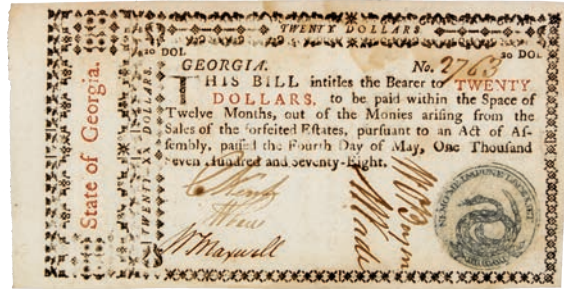 TWENTY DOLLARS.
20 DOL. 20 DOL.
GEORGIA. No. 2763
THIS BILL intitles the Bearer to TWENTY
DOLLARS, to be paid within the Space of
Twelve Months, out of the Monies arising from the
Sales of the forfeited Estates, pursuant to an Act of As-
sembly, passed the Fourth Day of May, One Thousand
seven Hundred and seventy-Eight.
State of Georgia.
TWENTY-XX DOLLARS.
Wm Maxwell
NEMO ME IMPUNE LACESSET